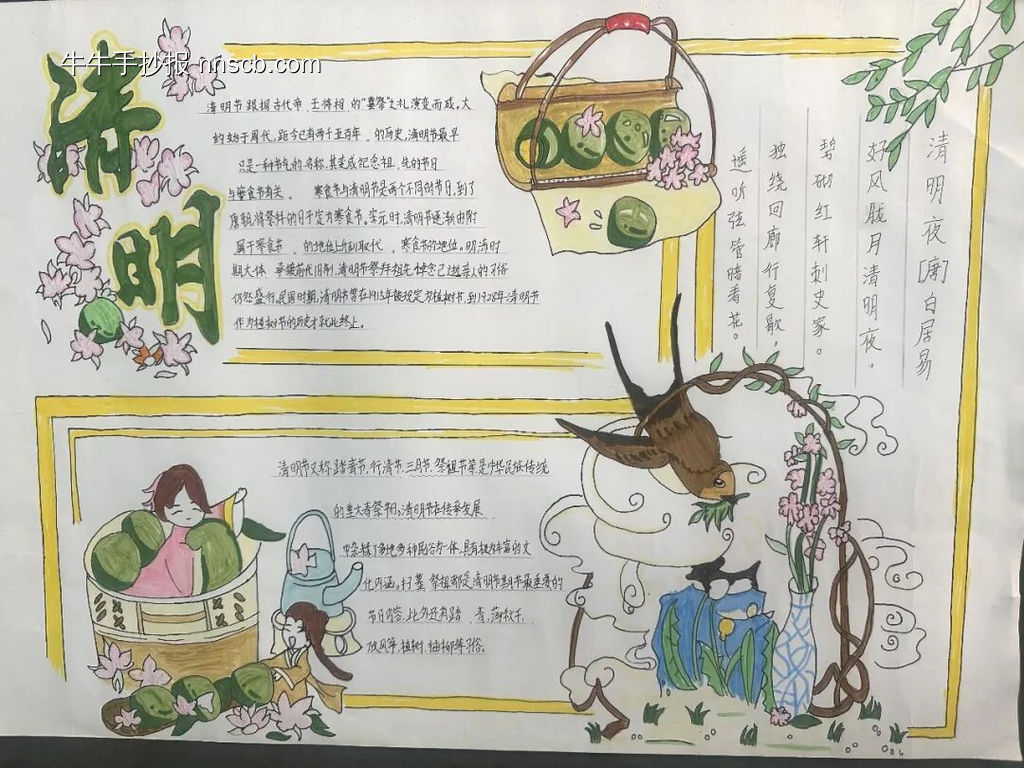 牛牛手抄报 nnscb.com
清明
清明节跟相古代帝、王将相、的“墓祭”之礼演变而成。大
约始于周代，距今已有两千五百年、的历史，清明节最早
只是一种节气的名称，其变成纪念祖、先的节日
与寒食节有关。、寒食节与清明节是两个不同的节日，到了
唐朝，将祭拜的日子定为寒食节。宋元时，清明节逐渐由附
属于寒食节、的地位上升到取代、寒食节的地位。明清时
期大体、承接前代旧制，清明节祭拜祖先悼念已逝亲人的习俗
仍然盛行。民国时期，清明节曾在1915年被规定为植树节，到1928年清明节
作为植树节的历史才就此终止。
清明夜 [唐] 白居易
好风胧月清明夜，
碧砌红轩刺史家。
独绕回廊行复歇，
遥听弦管暗看花。
清明节又称踏青节、行清节、三月节、祭祖节等是中华民族传统
的重大春祭节日。清明节在传承发展
中杂糅了多地多种民俗为一体，具有极为丰富的文
化内涵。扫墓、祭祖都是清明节期节最重要的
节日内容、此外还有踏、青、荡秋千、
放风筝、植树、插柳等习俗。